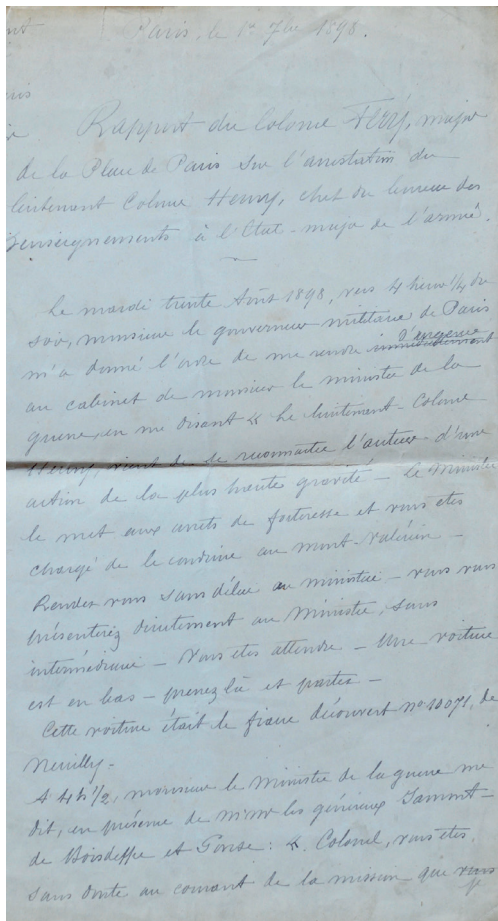 Paris, le 1er 7bre 1898.
Rapport du Colonel Féry, major
de la Place de Paris sur l'arrestation du
lieutenant Colonel Henry, chef du bureau des
Renseignements à l'Etat-major de l'armée.
Le mardi trente Août 1898, vers 4 heures 1/4 du
soir, monsieur le gouverneur militaire de Paris
d'urgence
m'a donné l'ordre de me rendre immédiatement
au cabinet de monsieur le ministre de la
guerre, en me disant « Le lieutenant-Colonel
Henry, vient de se reconnaître l'auteur d'une
action de la plus haute gravité — Le Ministre
le met aux arrets de forteresse et vous êtes
chargé de le conduire au mont-Valérien —
Rendez vous sans délai au ministère — vous vous
présenterez directement au Ministre, sans
intermédiaire — Vous êtes attendu — Une voiture
est en bas — prenez là et partez —
Cette voiture était le fiacre découvert no 10071, de
Neuilly —
A 4h 1/2, monsieur le Ministre de la guerre me
dit, en présence de MMrs les généraux
de Boisdeffre et Gonse : « Colonel, vous êtes
sans doute au courant de la mission que vous